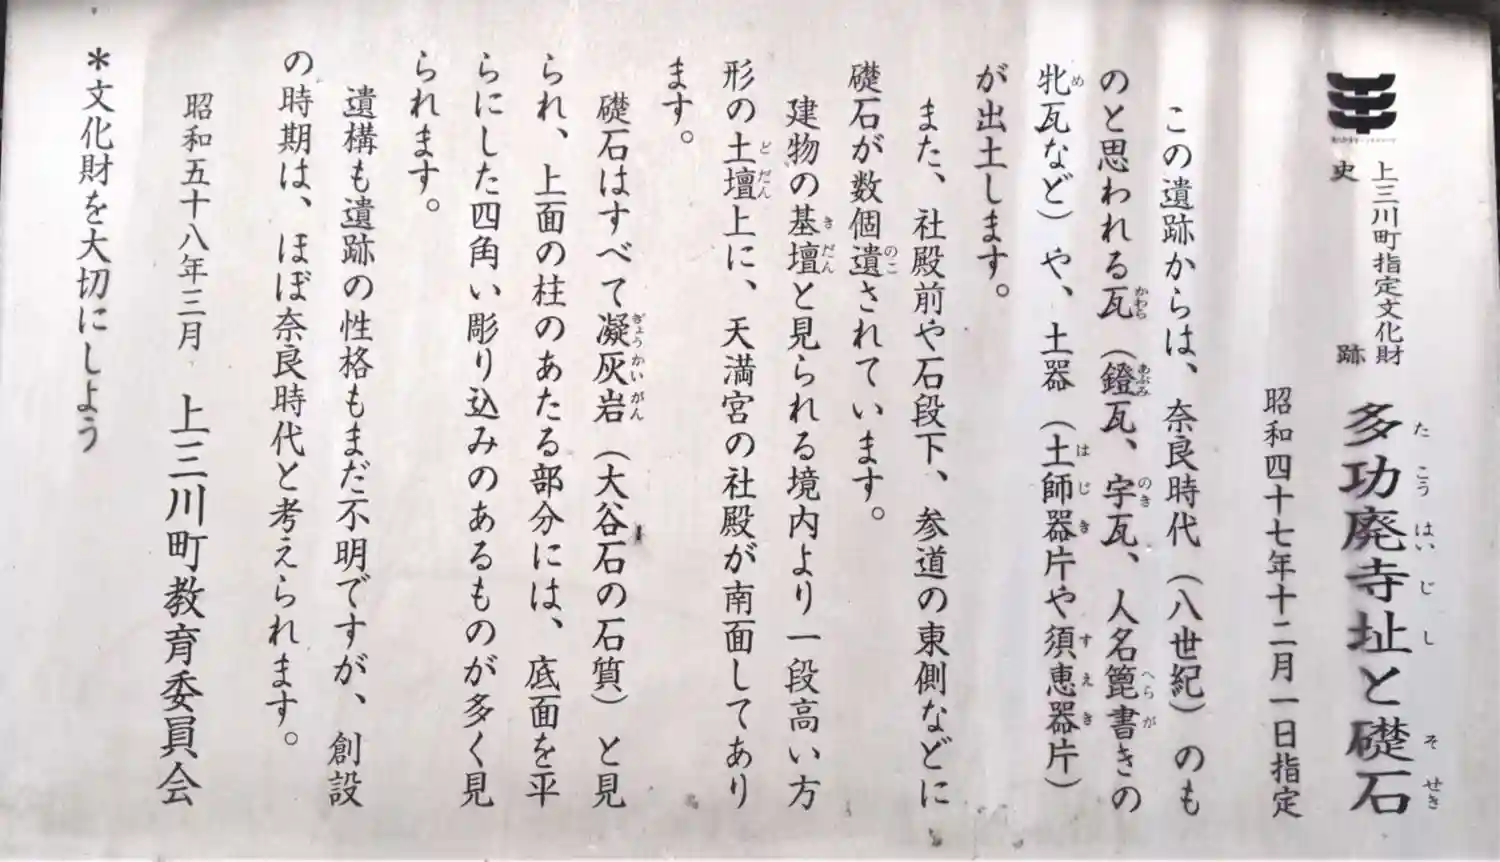 上三川町指定文化財
史跡 多功廃寺址と礎石
昭和四十七年十二月一日指定
この遺跡からは、奈良時代（八世紀）のも
のと思われる瓦（鐙瓦、宇瓦、人名篦書きの
牝瓦など）や、土器（土師器片や須恵器片）
が出土します。
また、社殿前や石段下、参道の東側などに
礎石が数個遺されています。
建物の基壇と見られる境内より一段高い方
形の土壇上に、天満宮の社殿が南面してあり
ます。
礎石はすべて凝灰岩（大谷石の石質）と見
られ、上面の柱のあたる部分には、底面を平
らにした四角い彫り込みのあるものが多く見
られます。
遺構も遺跡の性格もまだ不明ですが、創設
の時期は、ほぼ奈良時代と考えられます。
昭和五十八年三月 上三川町教育委員会
＊文化財を大切にしよう